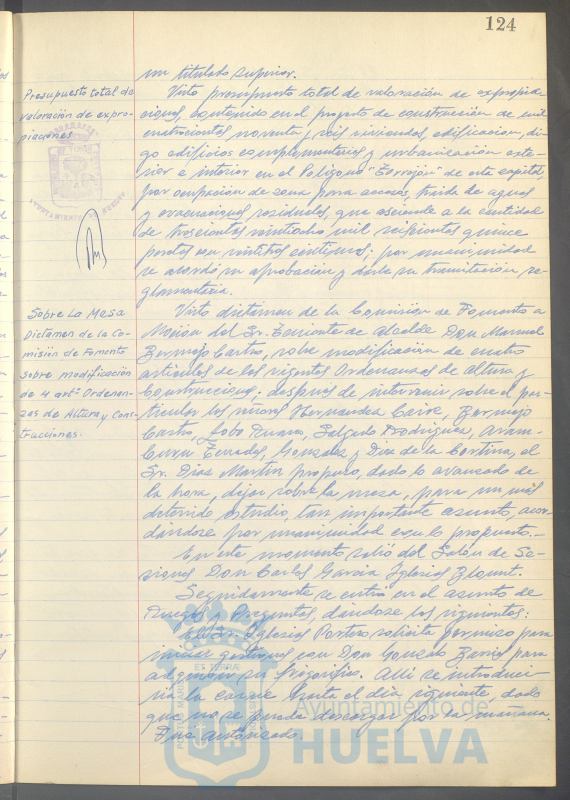 124
un titulado superior.
Presupuesto total de
valoración de expro-
piaciones
Visto presupuesto total de valoración de expropia-
ciones, contenido en el proyecto de construcción de mil
cuatrocientas noventa y seis viviendas, edificacion, di-
go edificios complementarios y urbanización exte-
rior e interior en el Polígono "Torrejón" de esta capital,
por ocupación de zona para accesos, traida de aguas
y evacuaciones residuales, que asciende a la cantidad
de trescientas veintiocho mil seiscientas quince
pesetas con veintitres céntimos: por unanimidad
se acordó su aprobación y darle su tramitación re-
glamentaria.
Sobre La Mesa
Dictámen de la Co-
misión de Fomento
sobre modificación
de 4 artº Ordenan-
zas de Altura y Cons-
trucciones.
Visto dictamen de la Comisión de Fomento a
Moción del Sr. Teniente de Alcalde Don Manuel
Bermejo Castro, sobre modificación de cuatro
artículos de las vigentes Ordenanzas de altura y
Construcciones; después de intervenir sobre el par-
ticular los señores Hernandez Caire, Bermejo
Castro, Lobo Salgado Rodriguez, Aram-
buru Terrades, Gonzalez y Diaz de la Cortina, el
Sr. Diaz Martin propuso, dado lo avanzado de
la hora, dejar sobre la mesa, para un más
detenido estudio, tan importante asunto, acor-
dándose por unanimidad con lo propuesto.-
En este momento salió del Salón de Se-
siones Don Carlos Garcia Iglesias Blount.
Seguidamente se entró en el asunto de
Ruegos y Preguntas, dándose los siguientes:
El Sr. Iglesias Portero solicita permiso para
iniciar gestiones con Don Gonzalo Barrios para
adquirir su frigorífico. Alli se introduci-
ría la carne hasta el día siguiente, dado
que no se pueda descargar por la mañana.
Fué autorizado.
Ayuntamiento de
HUELVA